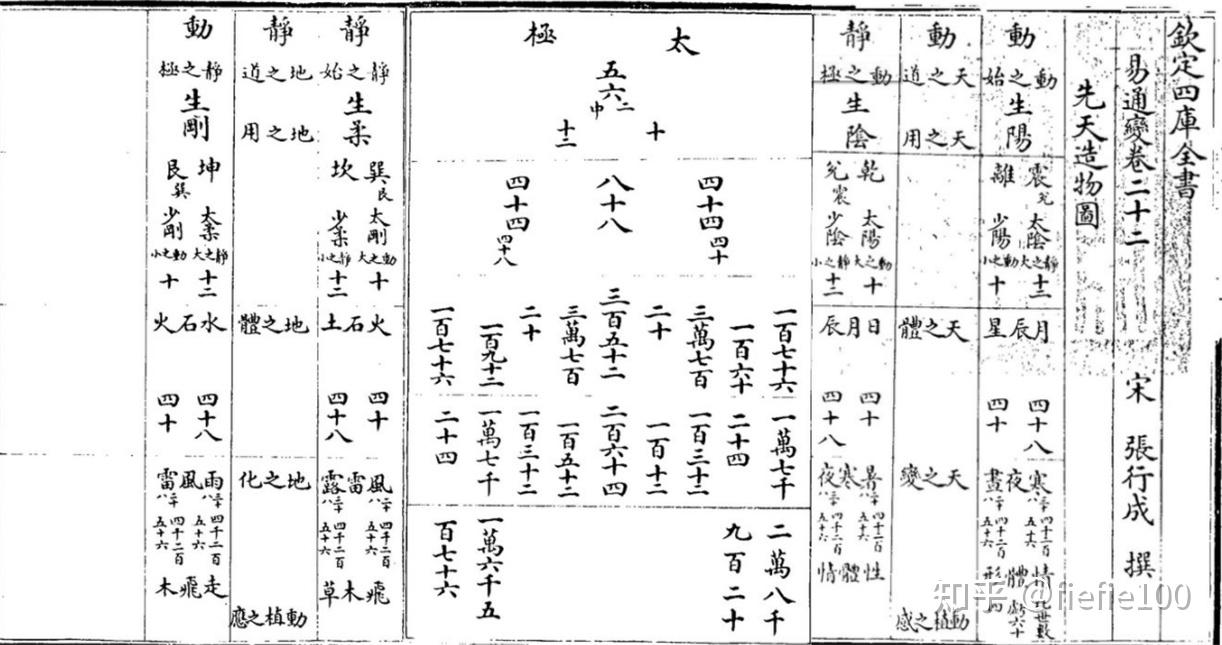 欽定四庫全書
易通變卷二十二 宋 張行成 撰
先天造物圖
動
動之始
生陽
震兌
離
太陰
少陽
靜之大
動之小
十二
十
月辰星
四十八
四十
寒夜晝
情體形
動
天之道
天之用
天之體
天之變
動植之感
靜
動之極
生陰
乾
兌震
太陽
少陰
動之大
靜之小
十
十二
日月辰
四十
四十八
暑寒夜
四十二百五十六
性體情
太極
五六
中
二
十
十二
四十四
四十
八十八
四十四
四十八
一百七十六
一百六十
三萬七百
二十
三百五十二
三萬七百
二十
一百九十二
一百七十六
一萬七千
二十四
一百三十二
一百十二
二百六十四
一百五十二
一百三十二
一萬七千
二十四
二萬八千
九百二十
一萬六千五
百七十六
靜
靜之始
生柔
巽艮
坎
太剛
少柔
動之大
靜之小
十
十二
火石土
四十
四十八
風雷露
飛木草
靜
地之道
地之用
地之體
地之化
動植之應
動
靜之極
生剛
坤
艮巽
太柔
少剛
靜之大
動之小
十二
十
水石火
四十八
四十
雨風雷
走飛木
知乎 @fiefie100